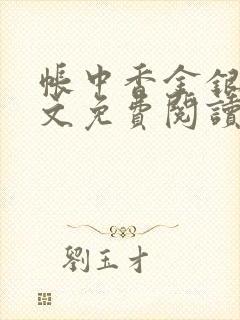 帳中香金銀
文免費閱讀
劉玉才